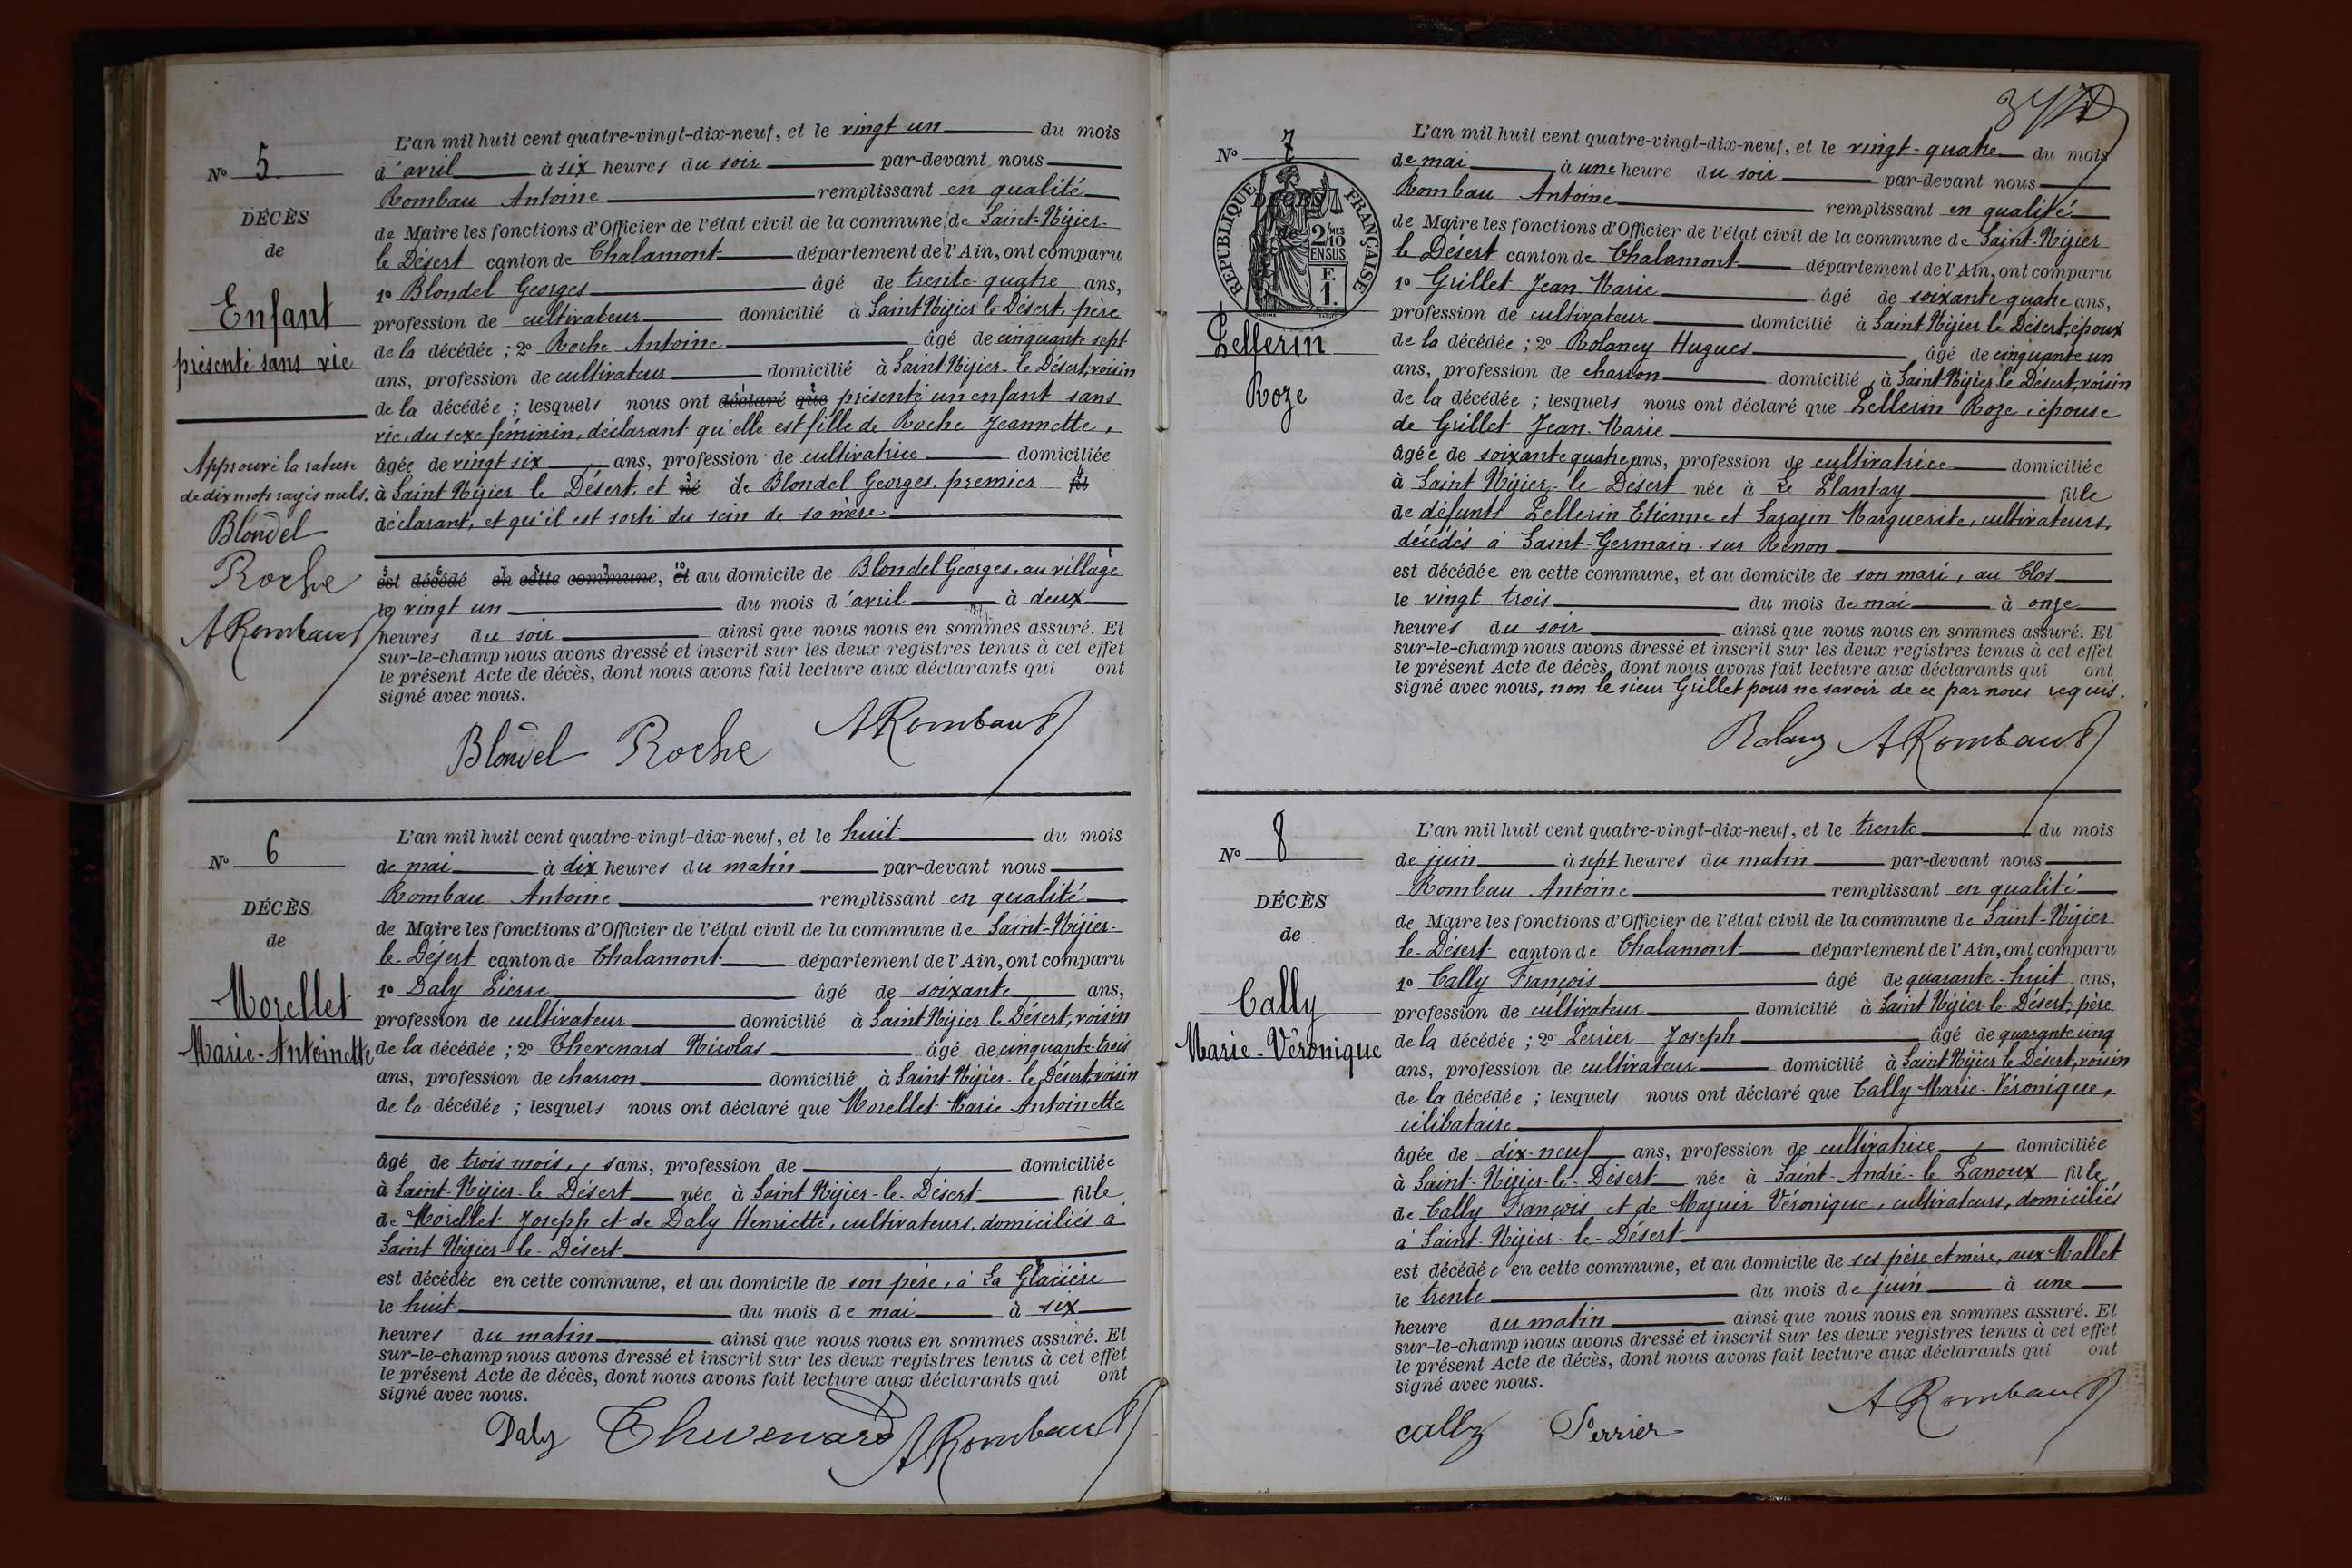 N° 5
DÉCÈS
de
Enfant
présenté sans vie
Approuvé la rature
de dix mots rayés nuls.
Blondel
Roche
ARombaud
L'an mil huit cent quatre-vingt-dix-neuf, et le vingt un du mois
d'avril à six heures du soir par-devant nous
Rombau Antoine remplissant en qualité
de Maire les fonctions d'Officier de l'état civil de la commune de Saint-Nizier-
le Désert canton de Chalamont département de l'Ain, ont comparu
1° Blondel Georges âgé de trente-quatre ans,
profession de cultivateur domicilié à Saint Nizier le Désert, père
de la décédée ; 2° Roche Antoine âgé de cinquante sept
ans, profession de cultivateur domicilié à Saint Nizier-le Désert, voisin
de la décédée ; lesquels nous ont déclaré que présenté un enfant sans
vie, du sexe féminin, déclarant qu'elle est fille de Roche Jeannette,
âgée de vingt six ans, profession de cultivatrice domiciliée
à Saint Nizier-le Désert, et né de Blondel Georges, premier fil
déclarant, et qu'il est sorti du sein de sa mère
est décédé en cette commune, et au domicile de Blondel Georges, au village
le vingt un du mois d'avril à deux
heures du soir ainsi que nous nous en sommes assuré. Et
sur-le-champ nous avons dressé et inscrit sur les deux registres tenus à cet effet
le présent Acte de décès, dont nous avons fait lecture aux déclarants qui ont
signé avec nous.
Blondel Roche ARombaud
N° 6
DÉCÈS
de
Morellet
Marie-Antoinette
L'an mil huit cent quatre-vingt-dix-neuf, et le huit du mois
de mai à dix heures du matin par-devant nous
Rombau Antoine remplissant en qualité
de Maire les fonctions d'Officier de l'état civil de la commune de Saint-Nizier-
le Désert canton de Chalamont département de l'Ain, ont comparu
1° Daly Pierre âgé de soixante ans,
profession de cultivateur domicilié à Saint Nizier le Désert, voisin
de la décédée ; 2° Thevenard Nicolas âgé de cinquante-trois
ans, profession de charron domicilié à Saint Nizier-le Désert, voisin
de la décédée ; lesquels nous ont déclaré que Morellet Marie Antoinette
âgé de trois mois, ans, profession de domiciliée
à Saint-Nizier-le Désert née à Saint Nizier-le-Désert fille
de Morellet Joseph et de Daly Henriette, cultivateurs, domiciliés à
Saint Nizier-le-Désert
est décédée en cette commune, et au domicile de son père, à La Glacière
le huit du mois de mai à six
heures du matin ainsi que nous nous en sommes assuré. Et
sur-le-champ nous avons dressé et inscrit sur les deux registres tenus à cet effet
le présent Acte de décès, dont nous avons fait lecture aux déclarants qui ont
signé avec nous.
Daly Thevenard ARombaud
N° 7
DÉCÈS
de
RÉPUBLIQUE FRANÇAISE
2/10 MES
EN SUS
F.
1.
Pellerin
Roze
L'an mil huit cent quatre-vingt-dix-neuf, et le vingt-quatre du mois
de mai à une heure du soir par-devant nous
Rombau Antoine remplissant en qualité
de Maire les fonctions d'Officier de l'état civil de la commune de Saint-Nizier
le Désert canton de Chalamont département de l'Ain, ont comparu
1° Grillet Jean Marie âgé de soixante quatre ans,
profession de cultivateur domicilié à Saint Nizier le Désert, époux
de la décédée ; 2° Rolancy Hugues âgé de cinquante un
ans, profession de charron domicilié à Saint Nizier le Désert, voisin
de la décédée ; lesquels nous ont déclaré que Pellerin Roze, épouse
de Grillet Jean-Marie
âgée de soixante quatre ans, profession de cultivatrice domiciliée
à Saint Nizier-le Désert née à Le Plantay fille
de défunts Pellerin Etienne et Sarazin Marguerite, cultivateurs,
décédés à Saint-Germain-sur Renon
est décédée en cette commune, et au domicile de son mari, au Clos
le vingt trois du mois de mai à onze
heures du soir ainsi que nous nous en sommes assuré. Et
sur-le-champ nous avons dressé et inscrit sur les deux registres tenus à cet effet
le présent Acte de décès, dont nous avons fait lecture aux déclarants qui ont
signé avec nous, non le sieur Grillet pour ne savoir de ce par nous requis.
ARombaud
N° 8
DÉCÈS
de
Cally
Marie-Véronique
L'an mil huit cent quatre-vingt-dix-neuf, et le trente du mois
de juin à sept heures du matin par-devant nous
Rombau Antoine remplissant en qualité
de Maire les fonctions d'Officier de l'état civil de la commune de Saint-Nizier
le-Désert canton de Chalamont département de l'Ain, ont comparu
1° Cally François âgé de quarante-huit ans,
profession de cultivateur domicilié à Saint Nizier-le-Désert, père
de la décédée ; 2° Perrier Joseph âgé de quarante cinq
ans, profession de cultivateur domicilié à Saint Nizier le Désert, voisin
de la décédée ; lesquels nous ont déclaré que Cally Marie-Véronique,
célibataire
âgée de dix-neuf ans, profession de cultivatrice domiciliée
à Saint-Nizier-le-Désert née à Saint-André-le Panoux fille
de Cally François et de Majuir Véronique, cultivateurs, domiciliés
à Saint-Nizier-le-Désert
est décédée en cette commune, et au domicile de ses père et mère, aux Mallet
le trente du mois de juin à une
heure du matin ainsi que nous nous en sommes assuré. Et
sur-le-champ nous avons dressé et inscrit sur les deux registres tenus à cet effet
le présent Acte de décès, dont nous avons fait lecture aux déclarants qui ont
signé avec nous.
cally Perrier ARombaud